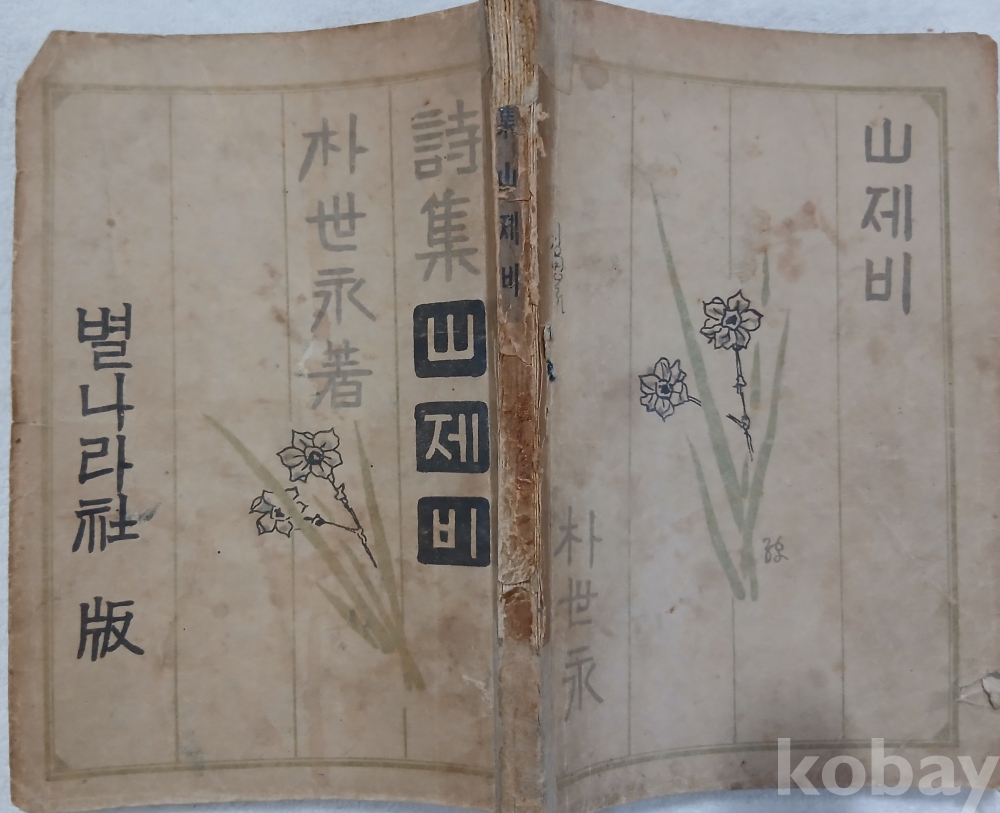 山제비
朴世永
集山제비
詩集山제비
朴世永著
별나라社 版
kobay